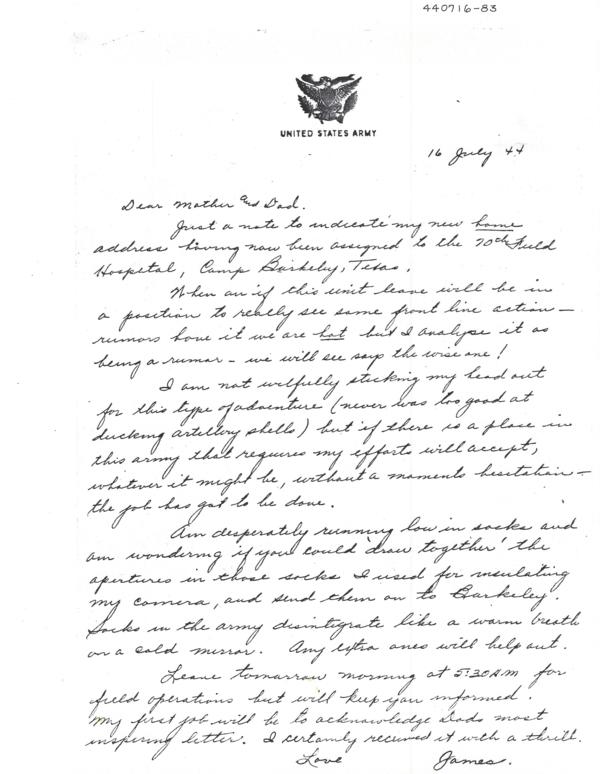 440716-83
UNITED STATES ARMY
16 July 44
Dear Mother and Dad.
Just a note to indicate my new home
address having now been assigned to the 70th Field
Hospital, Camp Barkeley, Texas.
When an if this unit leave will be in
a position to really see some front line action —
rumors have it we are hot but I analyse it as
being a rumor – we will see says the wise one!
I am not wilfully sticking my head out
for this type of adventure (never was too good at
ducking artillery shells) but if there is a place in
this army that requires my efforts will accept,
whatever it might be, without a moments hesitation –
the job has got to be done.
Am desperately running low in socks and
am wondering if you could 'draw together' the
apertures in those socks I used for insulating
my camera, and send them on to Barkeley.
Socks in the army disintegrate like a warm breath
on a cold mirror. Any extra ones will help out.
Leave tomorrow morning at 5:30 AM for
field operations but will keep you informed.
My first job will be to acknowledge Dads most
inspiring letter. I certainly received it with a thrill.
Love James.